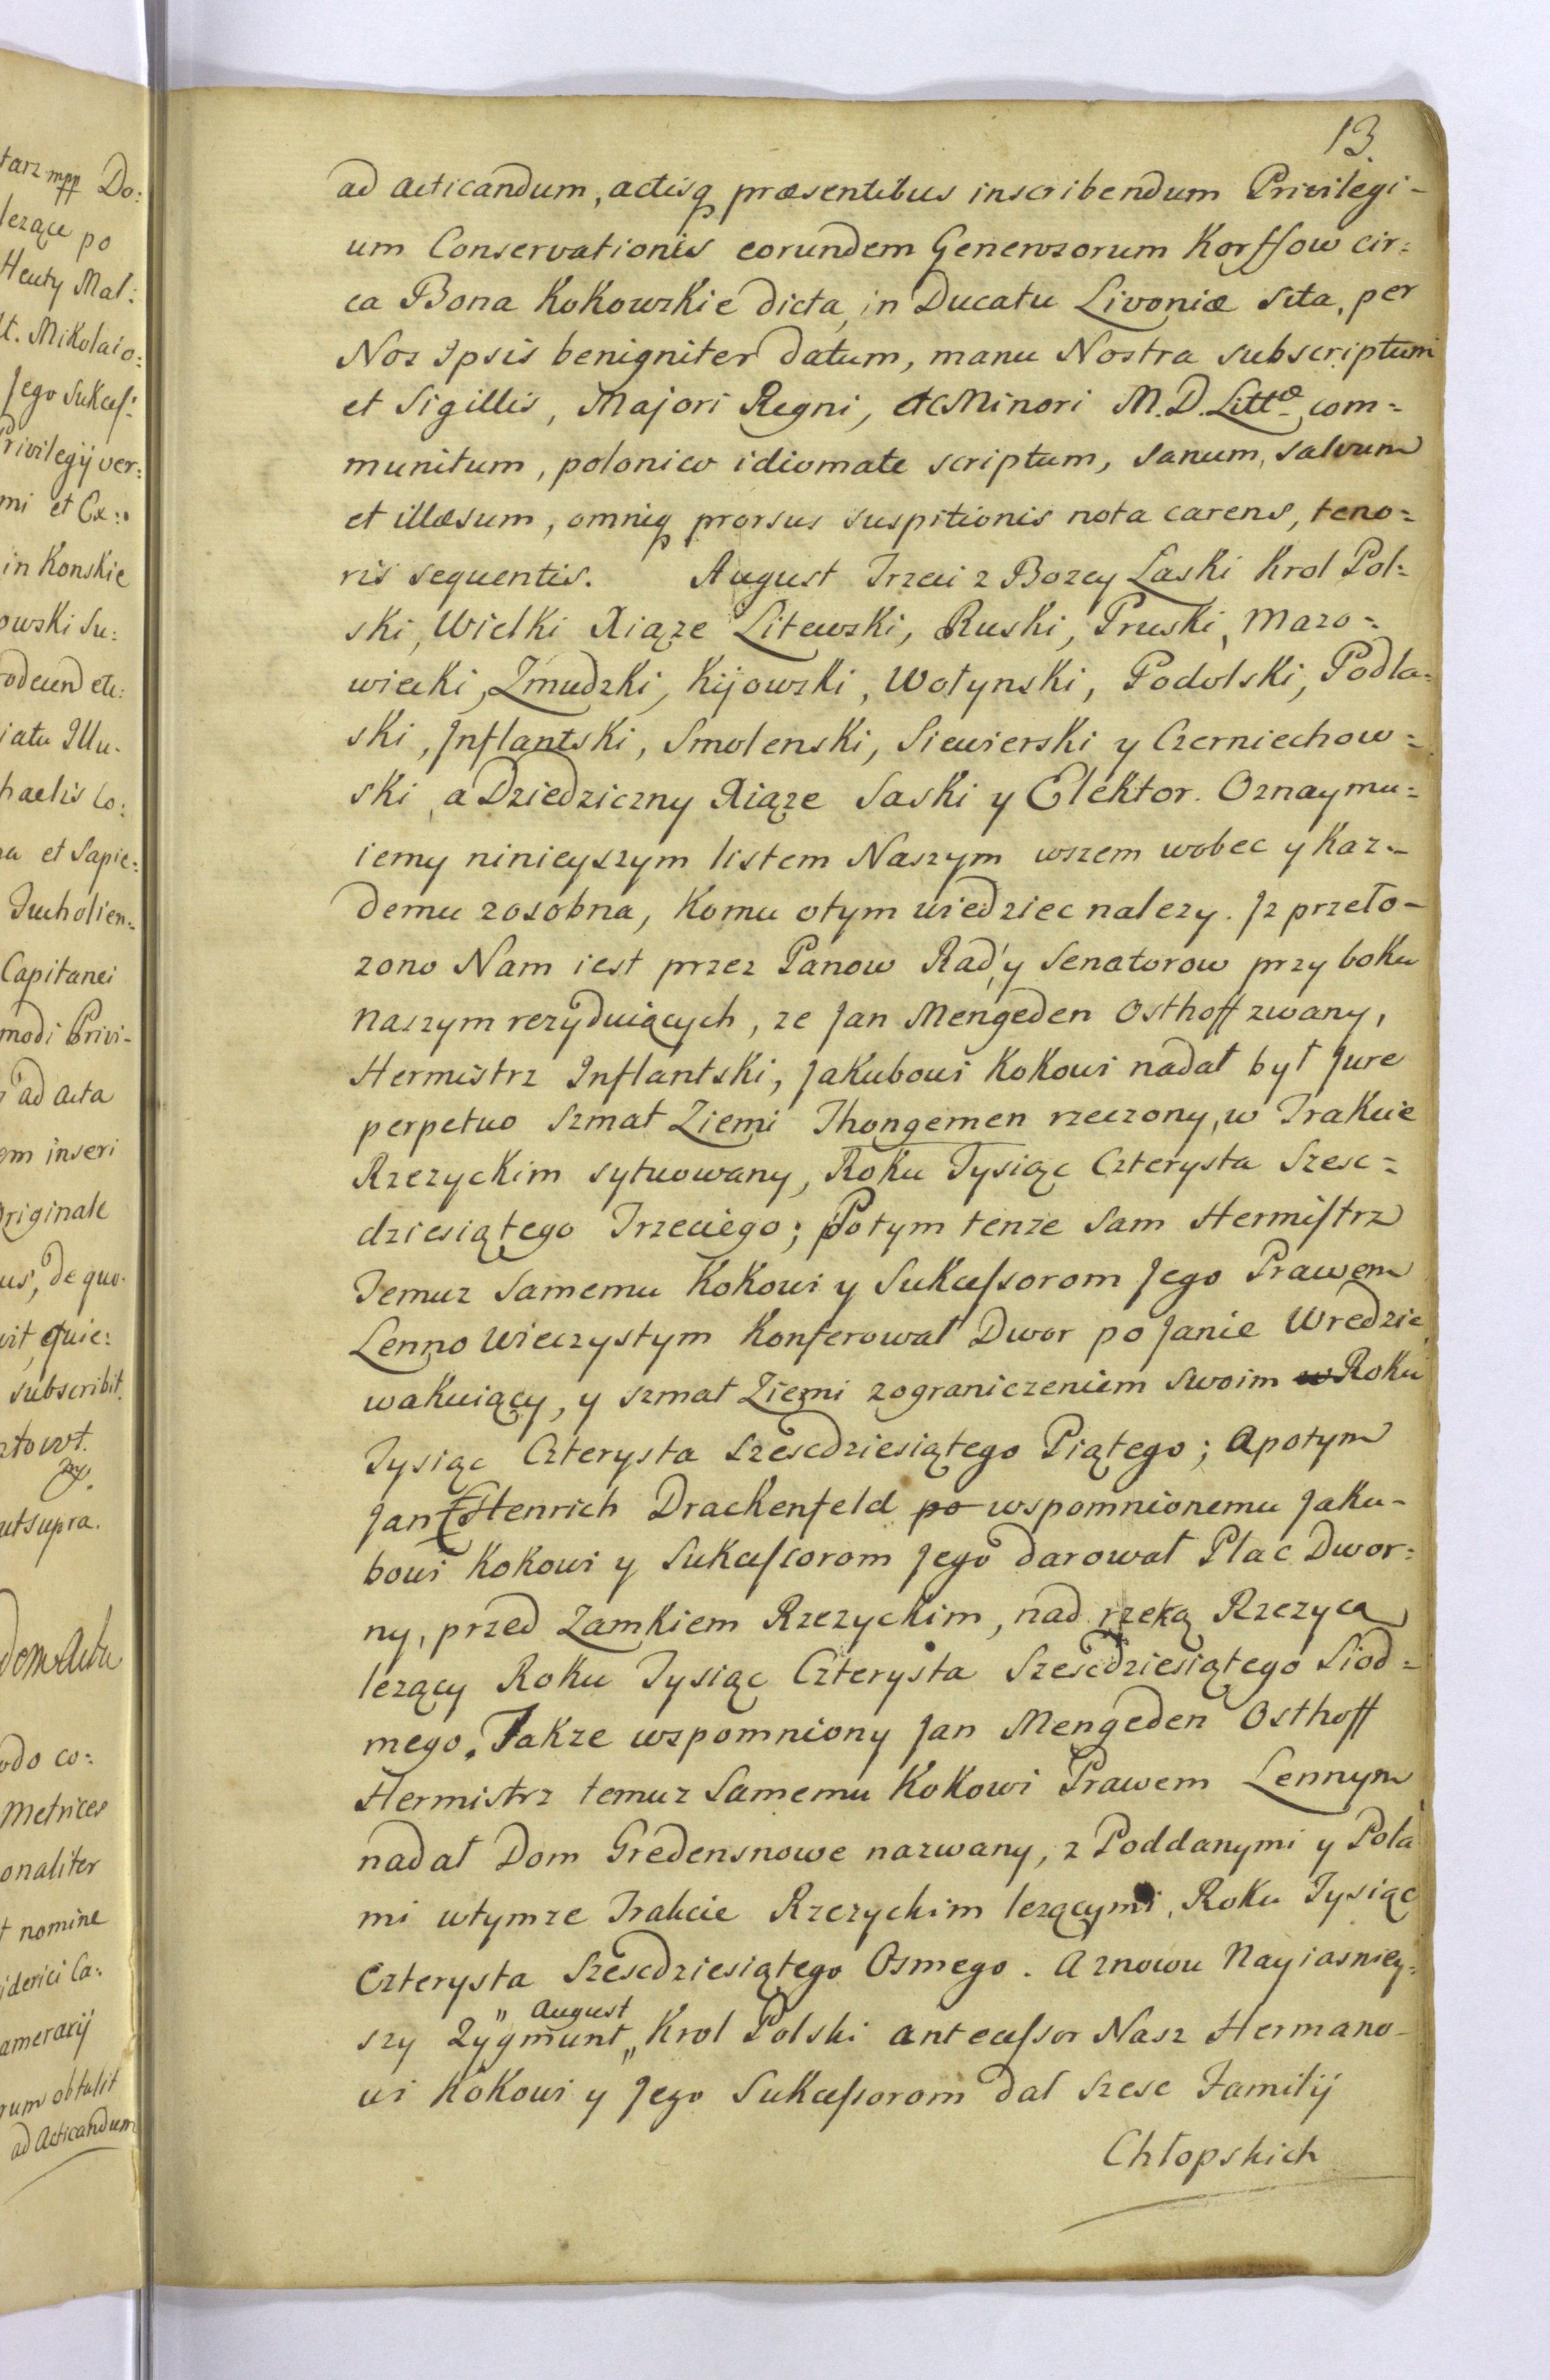 tarz mpp Do:
lezące po
Heuty Mal:
lt. Mikolaio:
Jego Sukces:
Privilegij ver:
mi et Ex:
in Konskie
owski Su:
iatu Illu-
haelis Co:
et Sapie:
Tucholien:
Capitanei
modi Privi-
ad acta
em inseri
Originale
us, de quo-
vit, quie:
subscribit.
utsupra.
odo co:
Metrices
onaliter
t nomine
iderici Ca:
amerarij
rum obtulit
ad Acticandum
13.
ad acticandum, actisq præsentibus inscribendum Privilegi-
um Conservationis eorundem Generosorum Korffow cir:
ca Bona Kokowskie dicta, in Ducatu Livoniæ sita, per
Nos Ipsis benigniter datum, manu Nostra subscriptum
et Sigillis, Majori Regni, ac Minori M. D. Littæ com=
munitum, polonico idiomate scriptum, sanum, salvum
et illæsum, omniq prorsus suspitionis nota carens, teno=
ris sequentis. August Trzeci z Bozey Łaski Krol Pol:
ski, Wielki Xiąze Litewski, Ruski, Pruski, Mazo=
wiecki, Zmudzki, Kijowski, Wołynski, Podolski, Podla=
ski, Inflantski, Smolenski, Siewierski y Czerniechow=
ski, a Dziedziczny Xiąze Saski y Elektor. Oznaymu=
iemy ninieyszym listem Naszym wszem wobec y kaz-
demu zosobna, komu otym wiedziec nalezy. Iz przeło-
zono Nam iest przez Panow Rad, y Senatorow przy boku
naszym rezyduiących, ze Jan Mengeden Osthoff zwany,
Hermistrz Inflantski, Jakubowi Kokowi nadał był Jure
perpetuo szmat Ziemi Thongemen rzeczony, w Trakcie
Rzezyckim sytuowany, Roku Tysiąc Czterysta Szesc=
dziesiątego Trzeciego; Potym tenze sam Hermistrz
Temuz samemu Kokowi y Sukcessorom Jego Prawem
Lenno Wieczystym Konferował Dwor po Janie Wredzie
wakuiący, y szmat Ziemi zograniczeniem swoim w Roku
Tysiąc Czterysta Szescdziesiątego Piątego; a potym
Jan Henrich Drackenfeld po wspomnionemu Jaku-
bowi Kokowi y Sukcessorom Jego darował Plac Dwor:
ny, przed Zamkiem Rzezyckim, nad rzeką Rzezyca
lezący Roku Tysiąc Czterysta Szescdziesiątego Siod=
mego. Takze wspomniony Jan Mengeden Osthoff
Hermistrz temuz Samemu Kokowi Prawem Lennym
nadał Dom Gredensnowe nazwany, z Poddanymi y Pola
mi wtymze Trakcie Rzezyckim lezącymi, Roku Tysiąc
Czterysta Szescdziesiątego Osmego. A znowu Nayiasniey=
August
szy Zygmunt Krol Polski antecessor Nasz Hermano-
wi Kokowi y Jego Sukcessorom dał Szesc Familij
Chłopskich